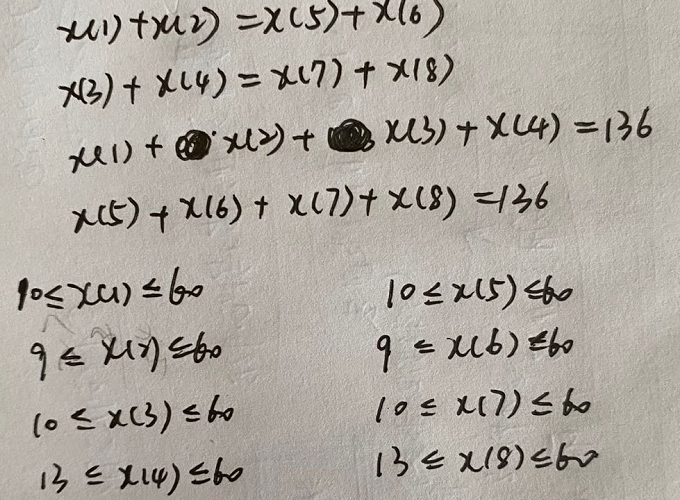 x(1)+x(2)=x(5)+x(6)
x(3)+x(4)=x(7)+x(8)
x(1)+x(2)+x(3)+x(4)=136
x(5)+x(6)+x(7)+x(8)=136
10≤x(1)≤60 10≤x(5)≤60
9≤x(2)≤60 9≤x(6)≤60
10≤x(3)≤60 10≤x(7)≤60
13≤x(4)≤60 13≤x(8)≤60